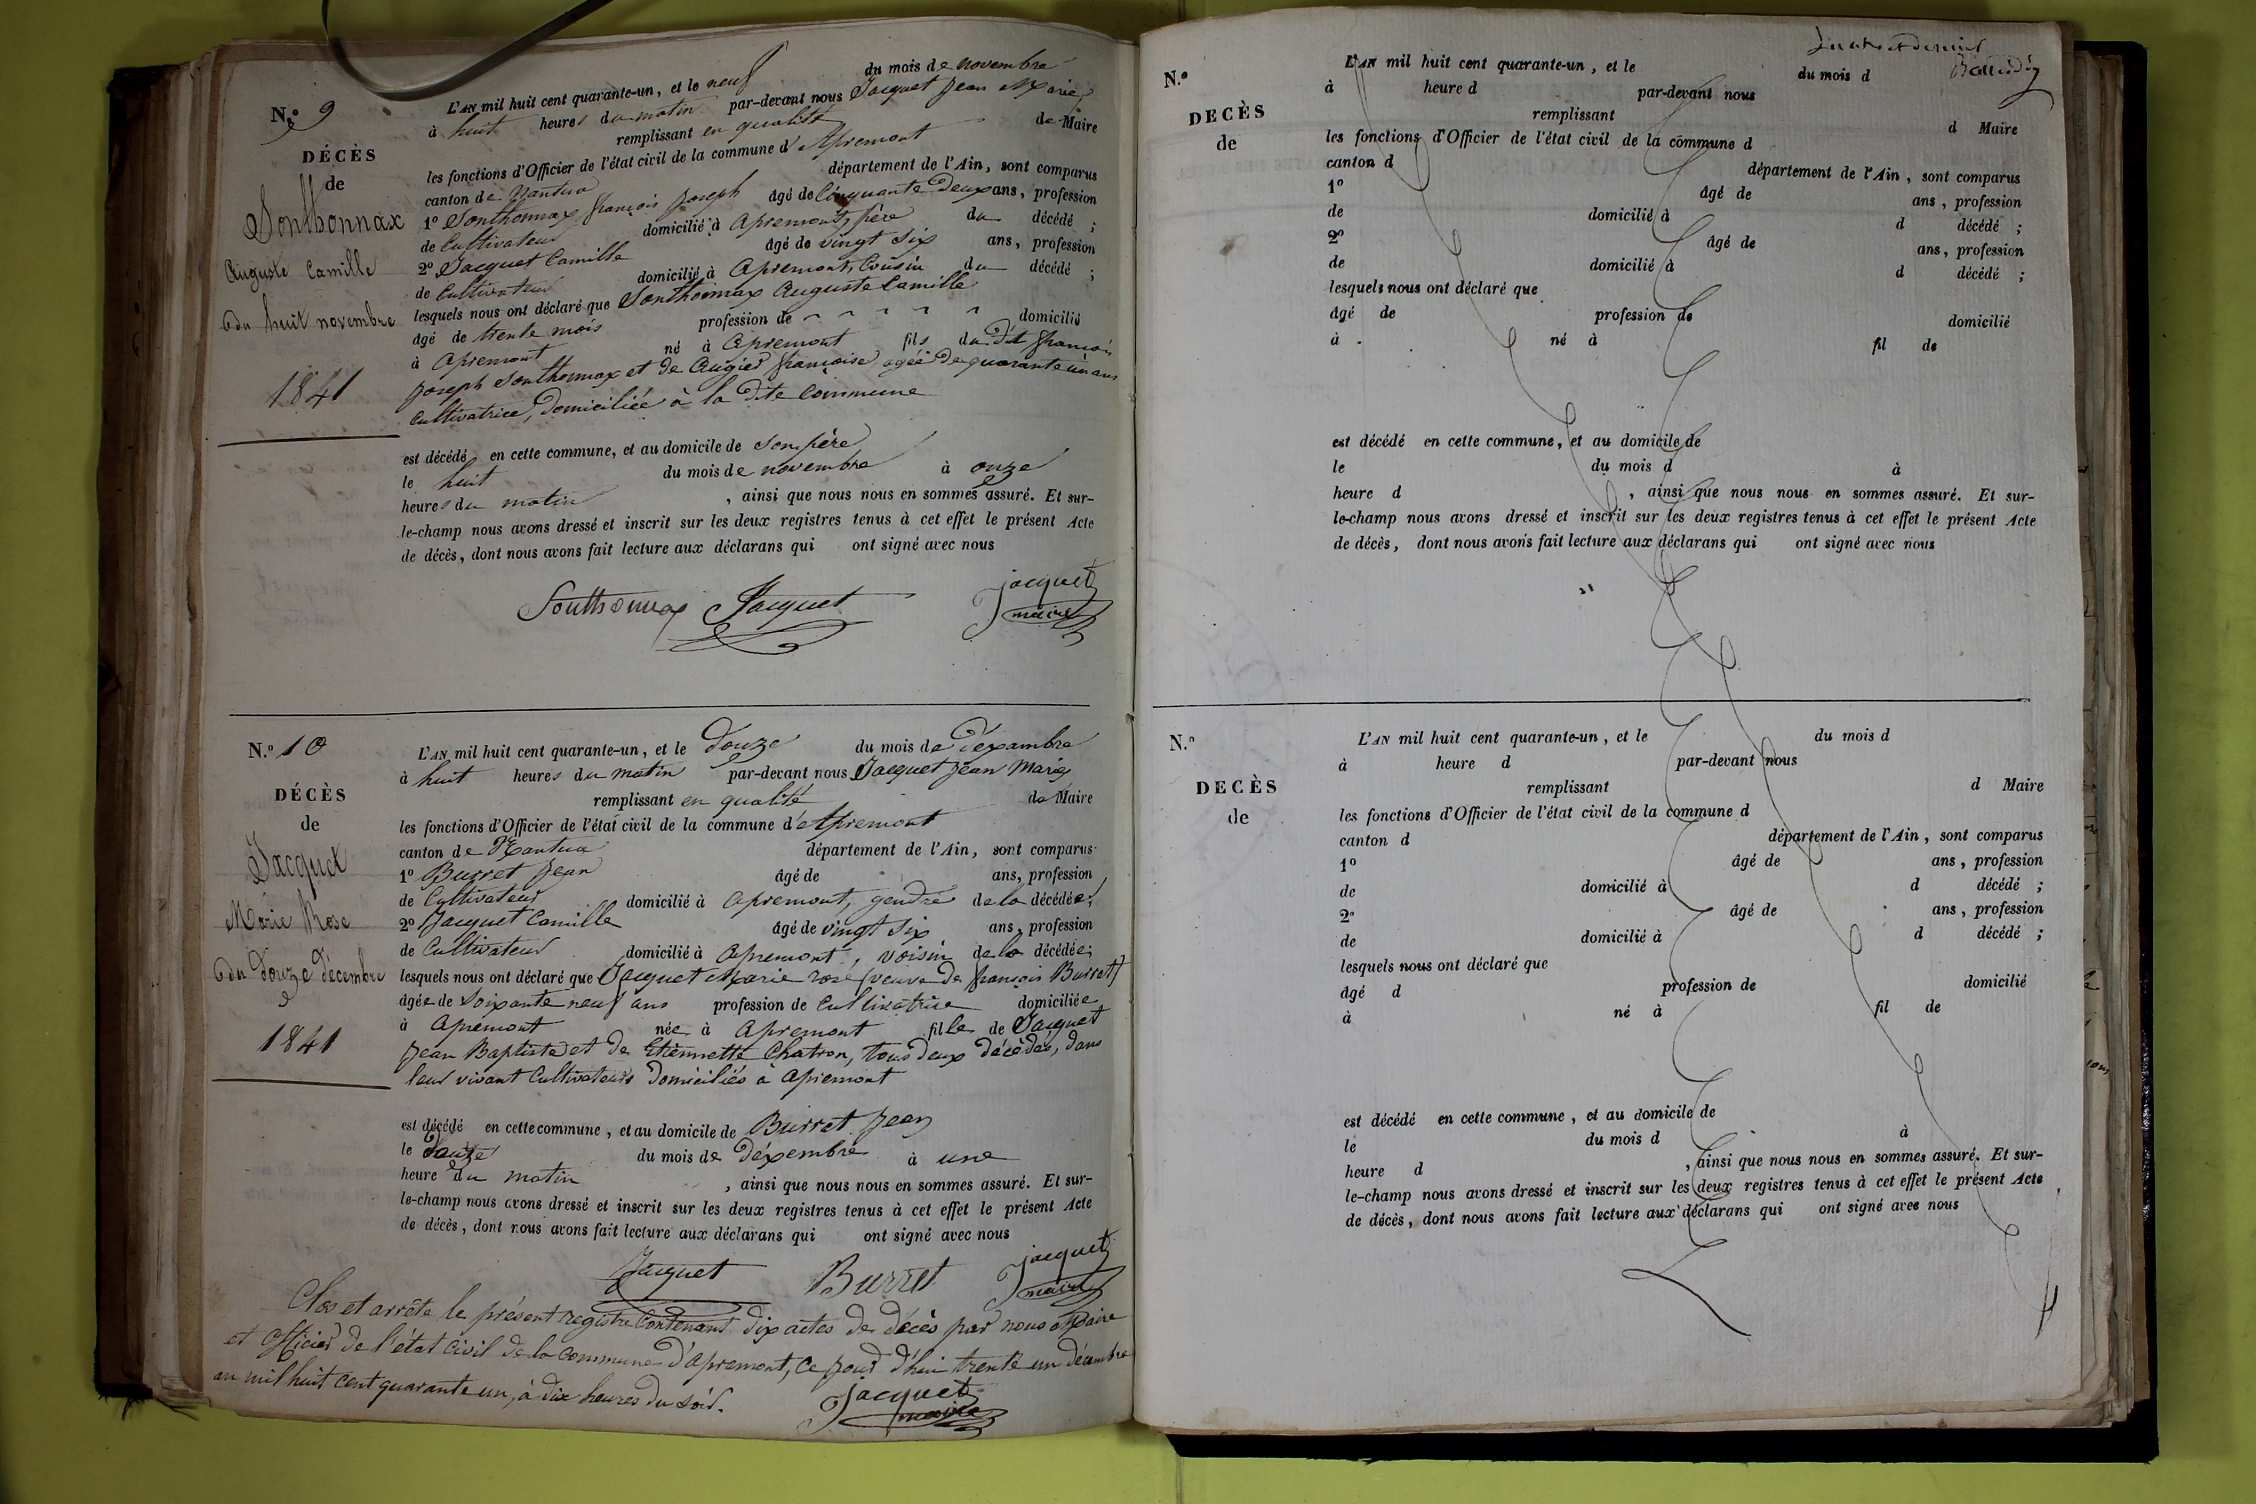 N.º 9
DÉCÈS
de
Sonthonnax
Auguste Camille
du huit novembre
1841
L'AN mil huit cent quarante-un, et le neuf du mois de novembre
à huit heures du matin par-devant nous Jacquet Jean Marie,
remplissant en qualité de Maire
les fonctions d'Officier de l'état civil de la commune d'Apremont
canton de Nantua département de l'Ain, sont comparus
1º Sonthonnax françois Joseph âgé de Cinquante Deux ans, profession
de Cultivateur domicilié à Apremont, père du décédé ;
2º Jacquet Camille âgé de vingt six ans, profession
de Cultivateur domicilié à Apremont, Cousin du décédé ;
lesquels nous ont déclaré que Sonthonnax Auguste Camille
âgé de trente mois profession de domicilié
à Apremont né à Apremont fils du Dit françois
Joseph Sonthonnax et de Augier françoise agée de quarante un ans
Cultivatrice, Domiciliée à la Dite Commune
est décédé en cette commune, et au domicile de son père
le huit du mois de novembre à onze
heures du matin , ainsi que nous nous en sommes assuré. Et sur-
le-champ nous avons dressé et inscrit sur les deux registres tenus à cet effet le présent Acte
de décès, dont nous avons fait lecture aux déclarans qui ont signé avec nous
Sonthonnax Jacquet jacquet
maire
N.º 10
DÉCÈS
de
Jacquet
Marie Rose
du Douze Décembre
1841
L'AN mil huit cent quarante-un, et le Douze du mois de Déxambre
à huit heures du matin par-devant nous Jacquet Jean Marie
remplissant en qualité de Maire
les fonctions d'Officier de l'état civil de la commune d'Apremont
canton de Nantua département de l'Ain, sont comparus
1º Burret Jean âgé de ans, profession
de Cultivateur domicilié à Apremont, gendre de la décédée ;
2º Jacquet Camille âgé de vingt six ans, profession
de Cultivateur domicilié à Apremont, voisin de la décédée ;
lesquels nous ont déclaré que Jacquet Marie rose (veuve de françois Burret)
âgée de soixante neuf ans profession de Cultivatrice domiciliée
à Apremont née à Apremont fille de Jacquet
Jean Baptiste et de Etiennette Chatron, tous deux décédés, dans
leur vivant Cultivateurs Domiciliés à Apremont
est décédé en cette commune, et au domicile de Burret Jean
le Douze du mois de Déxembre à une
heure du matin , ainsi que nous nous en sommes assuré. Et sur-
le-champ nous avons dressé et inscrit sur les deux registres tenus à cet effet le présent Acte
de décès, dont nous avons fait lecture aux déclarans qui ont signé avec nous
Jacquet Burret jacquet
maire
Clos et arrêté le présent registre Contenant Dix actes de Décès par nous Maire
et officier de l'état Civil de la Commune d'Apremont, Ce jour d'hui trente un décembre
an mil huit Cent quarante un, à Dix heures du soir.
Jacquet
maire
N.º
DECÈS
de
L'AN mil huit cent quarante-un, et le du mois d
à heure d par-devant nous
remplissant d Maire
les fonctions d'Officier de l'état civil de la commune d
canton d département de l'Ain, sont comparus
1º âgé de ans, profession
de domicilié à d décédé ;
2º âgé de ans, profession
de domicilié à d décédé ;
lesquels nous ont déclaré que
âgé de profession de domicilié
à né à fil de
est décédé en cette commune, et au domicile de
le du mois d à
heure d , ainsi que nous nous en sommes assuré. Et sur-
le-champ nous avons dressé et inscrit sur les deux registres tenus à cet effet le présent Acte
de décès, dont nous avons fait lecture aux déclarans qui ont signé avec nous
N.º
DECÈS
de
L'AN mil huit cent quarante-un, et le du mois d
à heure d par-devant nous
remplissant d Maire
les fonctions d'Officier de l'état civil de la commune d
canton d département de l'Ain, sont comparus
1º âgé de ans, profession
de domicilié à d décédé ;
2º âgé de ans, profession
de domicilié à d décédé ;
lesquels nous ont déclaré que
âgé d profession de domicilié
à né à fil de
est décédé en cette commune, et au domicile de
le du mois d à
heure d , ainsi que nous nous en sommes assuré. Et sur-
le-champ nous avons dressé et inscrit sur les deux registres tenus à cet effet le présent Acte
de décès, dont nous avons fait lecture aux déclarans qui ont signé avec nous